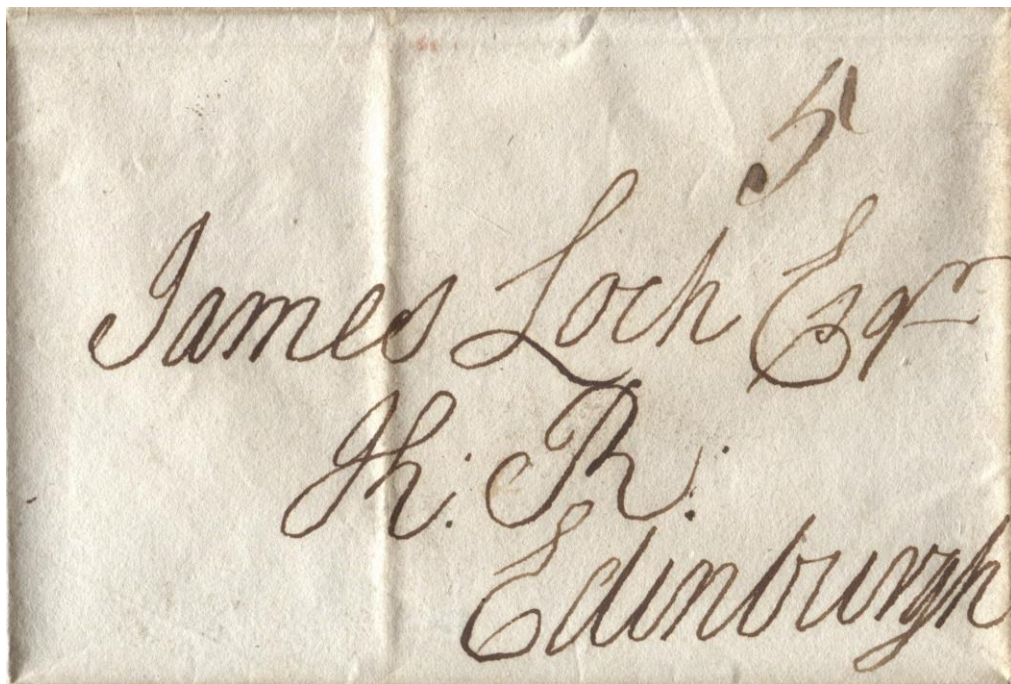 5
James Loch Esqr
K: R:
Edinburgh